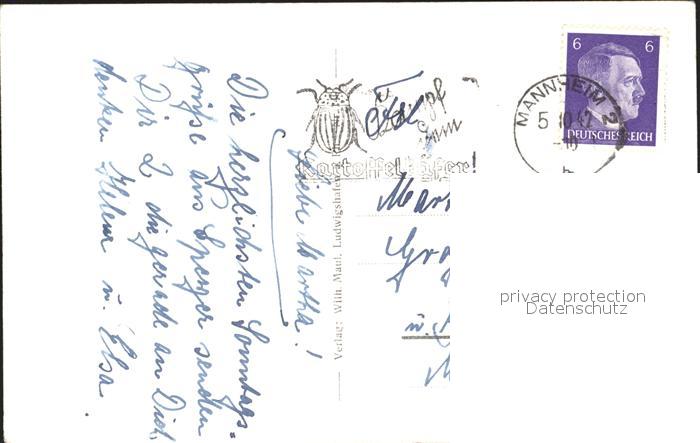 Liebe Martha!
Die herzlichsten Sonntags-
grüße aus Speyer senden
Dir 2 die gerade an Dich
denken Helene u. Elsa.
Verlag: Wilh. Maul, Ludwigshafen
Kampf
dem
Kartoffelkäfer!
MANNHEIM 2
5 10 42
6 6
DEUTSCHES REICH
privacy protection
Datenschutz